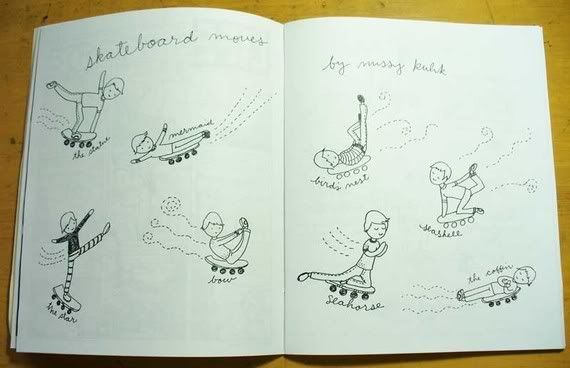 skateboard moves
by missy kulik
the statue
mermaid
the star
bow
bird's nest
seashell
seahorse
the coffin